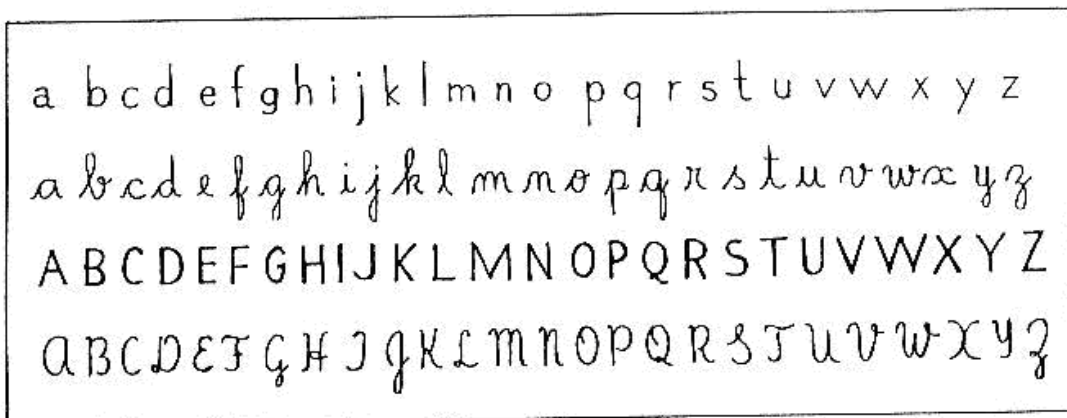 a b c d e f g h i j k l m n o p q r s t u v w x y z
a b c d e f g h i j k l m n o p q r s t u v w x y z
A B C D E F G H I J K L M N O P Q R S T U V W X Y Z
A B C D E F G H I J K L M N O P Q R S T U V W X Y Z